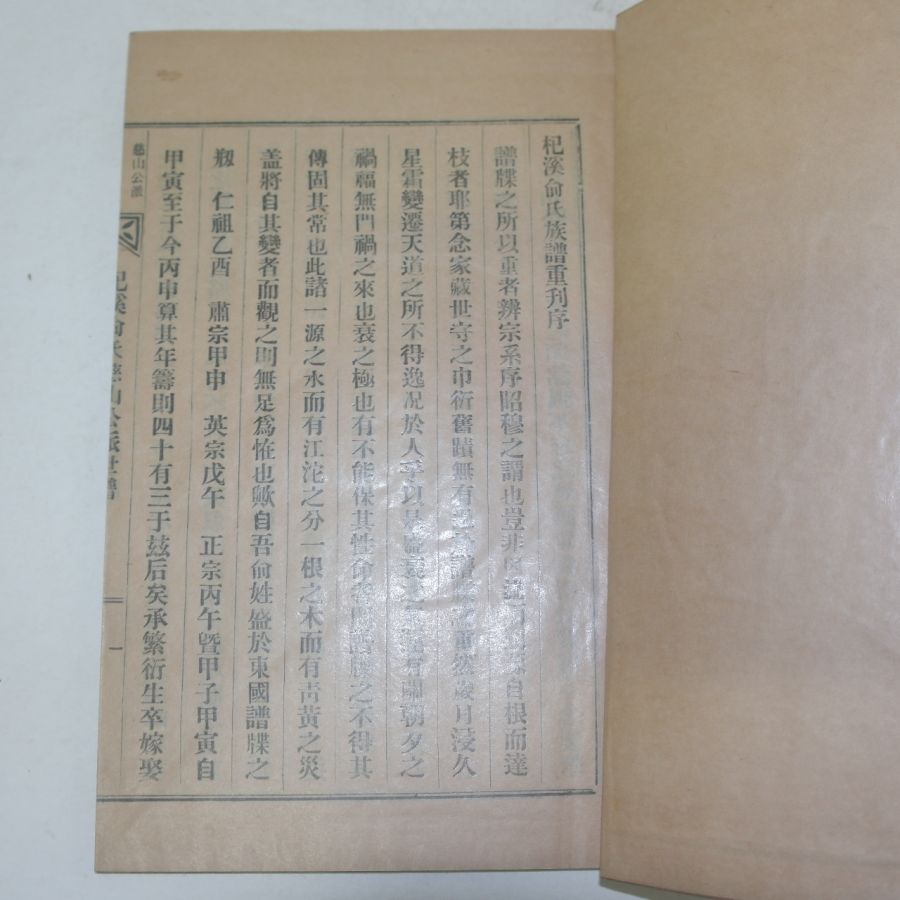 杞溪俞氏族譜重刋序
譜牒之所以重者辨宗系序昭穆之謂也豈非自根而達
枝者耶第念家藏世守之巾衍舊蹟無有歲月浸久
星霜變遷天道之所不得逸况於人乎以朝夕之
禍福無門禍之來也衰之極也有不能保其性命之不得其
傳固其常也此諸一源之水而有江沱之分一根之木而有靑黃之災
盖將自其變者而觀之則無足爲恠也歟自吾俞姓盛於東國譜牒之
剏 仁祖乙酉 肅宗甲申 英宗戊午 正宗丙午曁甲子甲寅自
甲寅至于今丙申算其年籌則四十有三于玆后矣承繁衍生卒嫁娶
慈山公派
杞溪俞氏慈山公派世譜
一